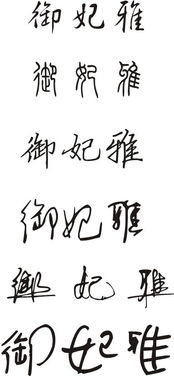 御妃雅
御妃雅
御妃雅
御妃雅
御妃雅
御妃雅